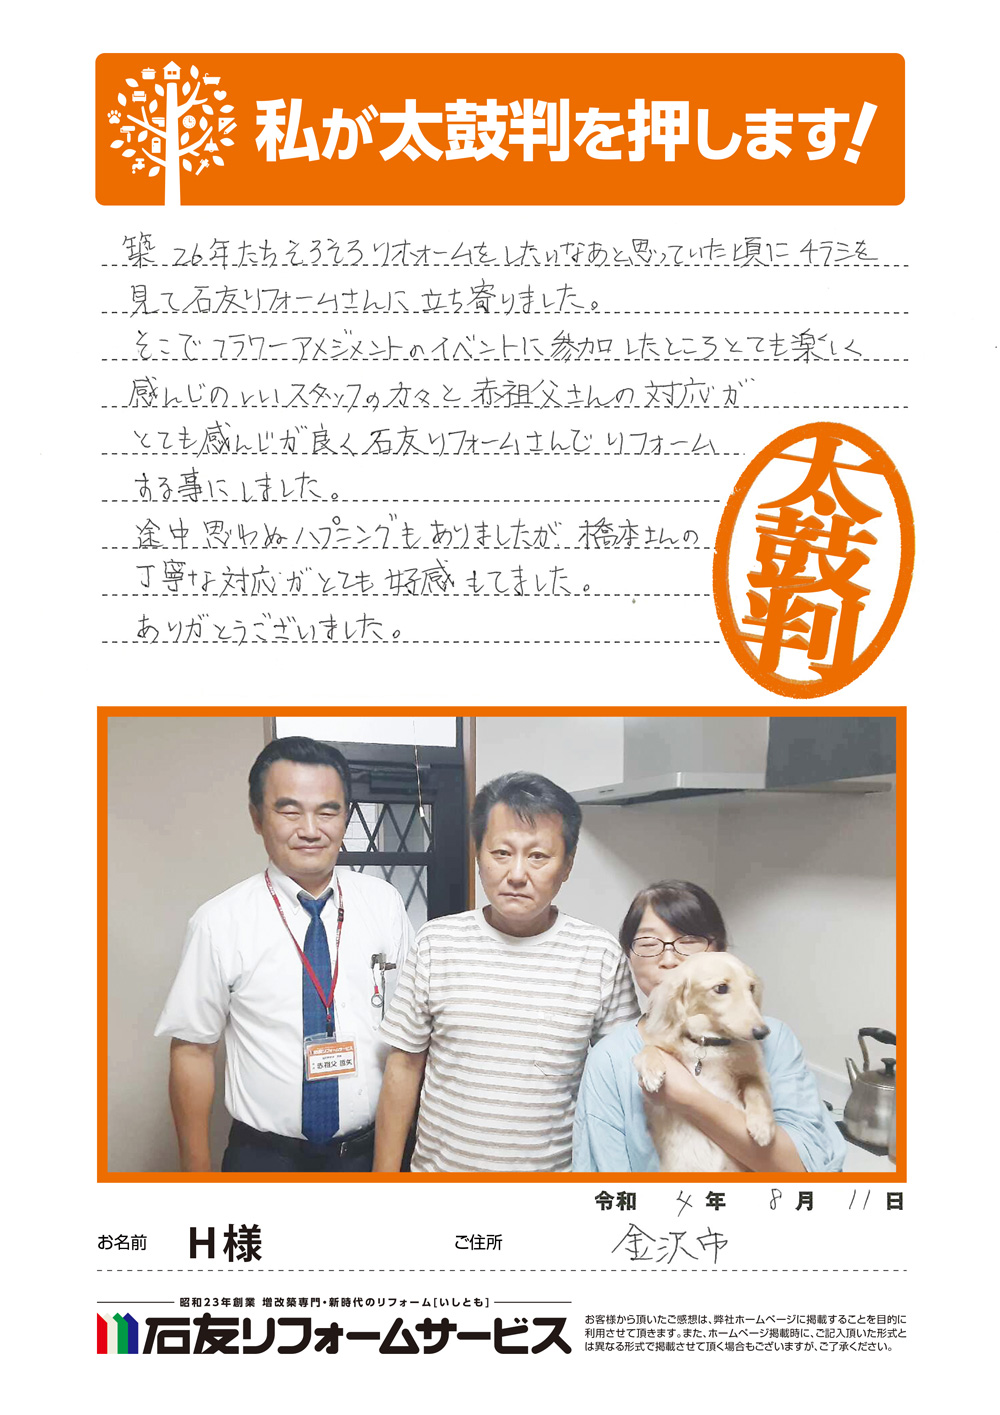 私が太鼓判を押します!
築26年たちそろそろリホォームをしたいなあと思っていた頃にチラシを
見て石友リフォームさんに立ち寄りました。
そこでフラワーアメジメントのイベントに参加したところとても楽しく
感んじのいいスタッフの方々と赤祖父さんの対応が
とても感んじが良く石友リフォームさんでリフォーム
する事にしました。
途中思わぬハプニングもありましたが橋本さんの
丁寧な対応がとても好感もてました。
ありがとうございました。
太鼓判
石友リフォームサービス
赤祖父
令和 4年 8月 11日
お名前 H様 ご住所 金沢市
昭和23年創業 増改築専門・新時代のリフォーム[いしとも]
石友リフォームサービス
お客様から頂いたご感想は、弊社ホームページに掲載することを目的に
利用させて頂きます。また、ホームページ掲載時に、ご記入頂いた形式と
は異なる形式で掲載させて頂く場合もございますが、ご了承ください。